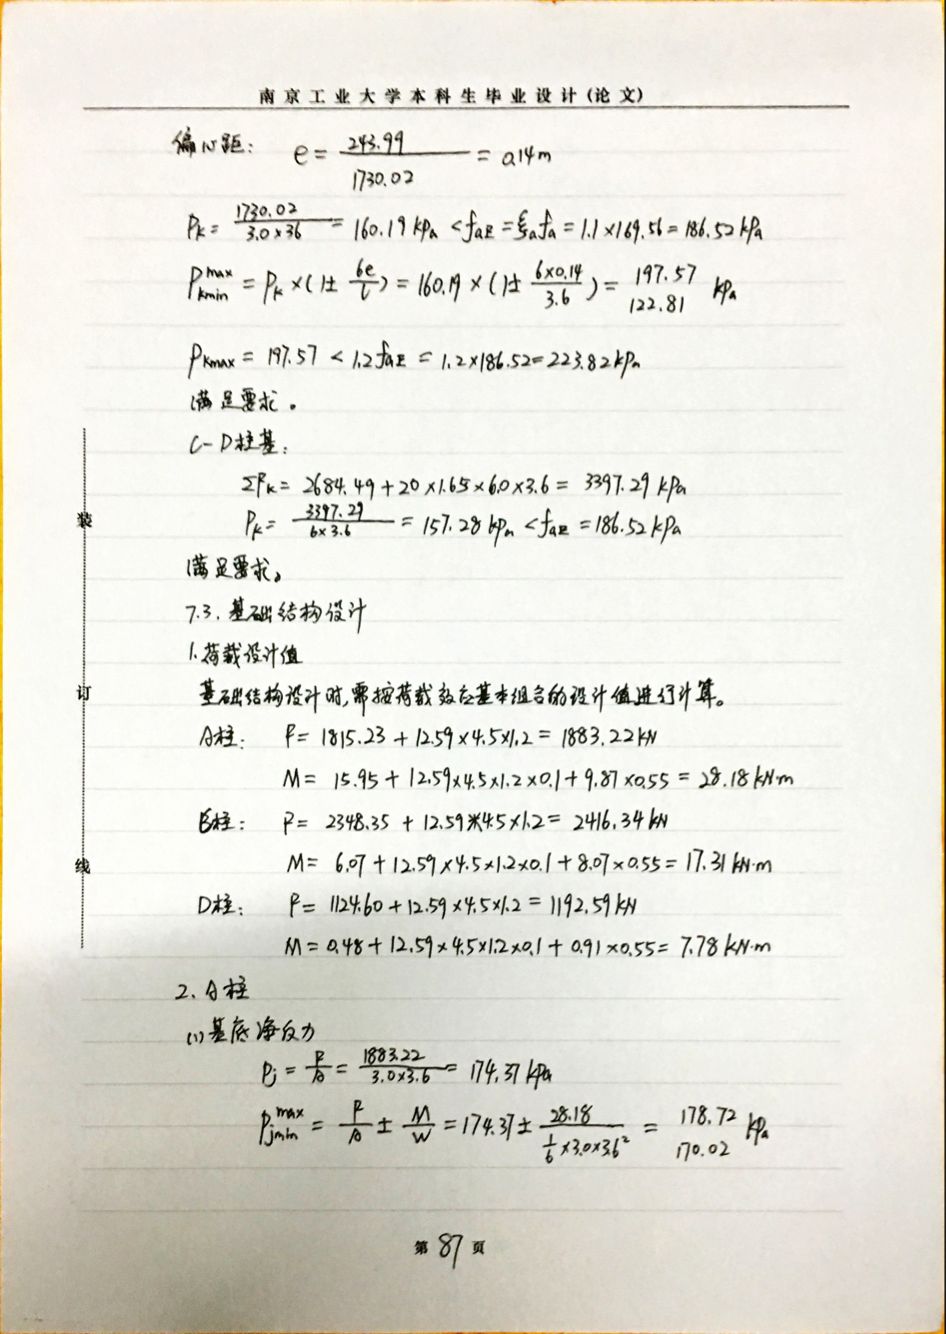 南京工业大学本科生毕业设计(论文)
偏心距: e = 243.99 / 1730.02 = 0.14m
Pk = 1730.02 / 3.0×36 = 160.19 kPa < faE = ξa fa = 1.1×169.56 = 186.52 kPa
Pkmin max = Pk×(1± 6e/l) = 160.19×(1± 6×0.14 / 3.6) = 197.57 122.81 kPa
Pkmax = 197.57 < 1.2faE = 1.2×186.52=223.82kPa
满足要求。
C-D柱基:
ΣFk = 2684.49+20×1.65×6.0×3.6 = 3397.29 kPa
Pk = 3397.29 / 6×3.6 = 157.28 kPa < faE = 186.52 kPa
满足要求。
7.3.基础结构设计
1.荷载设计值
基础结构设计时,需按荷载效应基本组合的设计值进行计算。
A柱: F= 1815.23 + 12.59×4.5×1.2 = 1883.22KN
M= 15.95 + 12.59×4.5×1.2×0.1 + 9.87×0.55 = 28.18 KN·m
B柱: F= 2348.35 + 12.59×4.5×1.2= 2416.34 KN
M= 6.07 + 12.59×4.5×1.2×0.1 + 8.07×0.55= 17.31 KN·m
D柱: F= 1124.60+12.59×4.5×1.2 = 1192.59KN
M= 0.48 + 12.59×4.5×1.2×0.1 + 0.91×0.55= 7.78 KN·m
2.A柱
(1)基底净反力
Pj = F/A = 1883.22 / 3.0×3.6 = 174.37 kPa
Pjmin max = F/A ± M/W = 174.37± 28.18 / 1/6×3.0×3.6² = 178.72 170.02 kPa
装
订
线
第 87 页